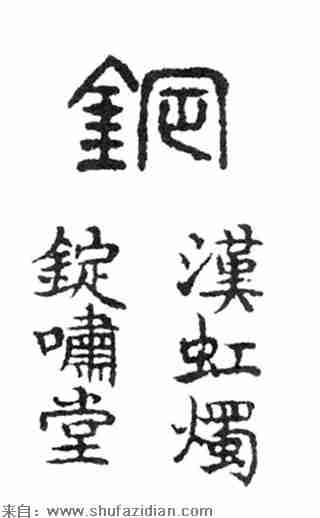 銅
漢虹燭
錠嘯堂
来自：www.shufazidian.com